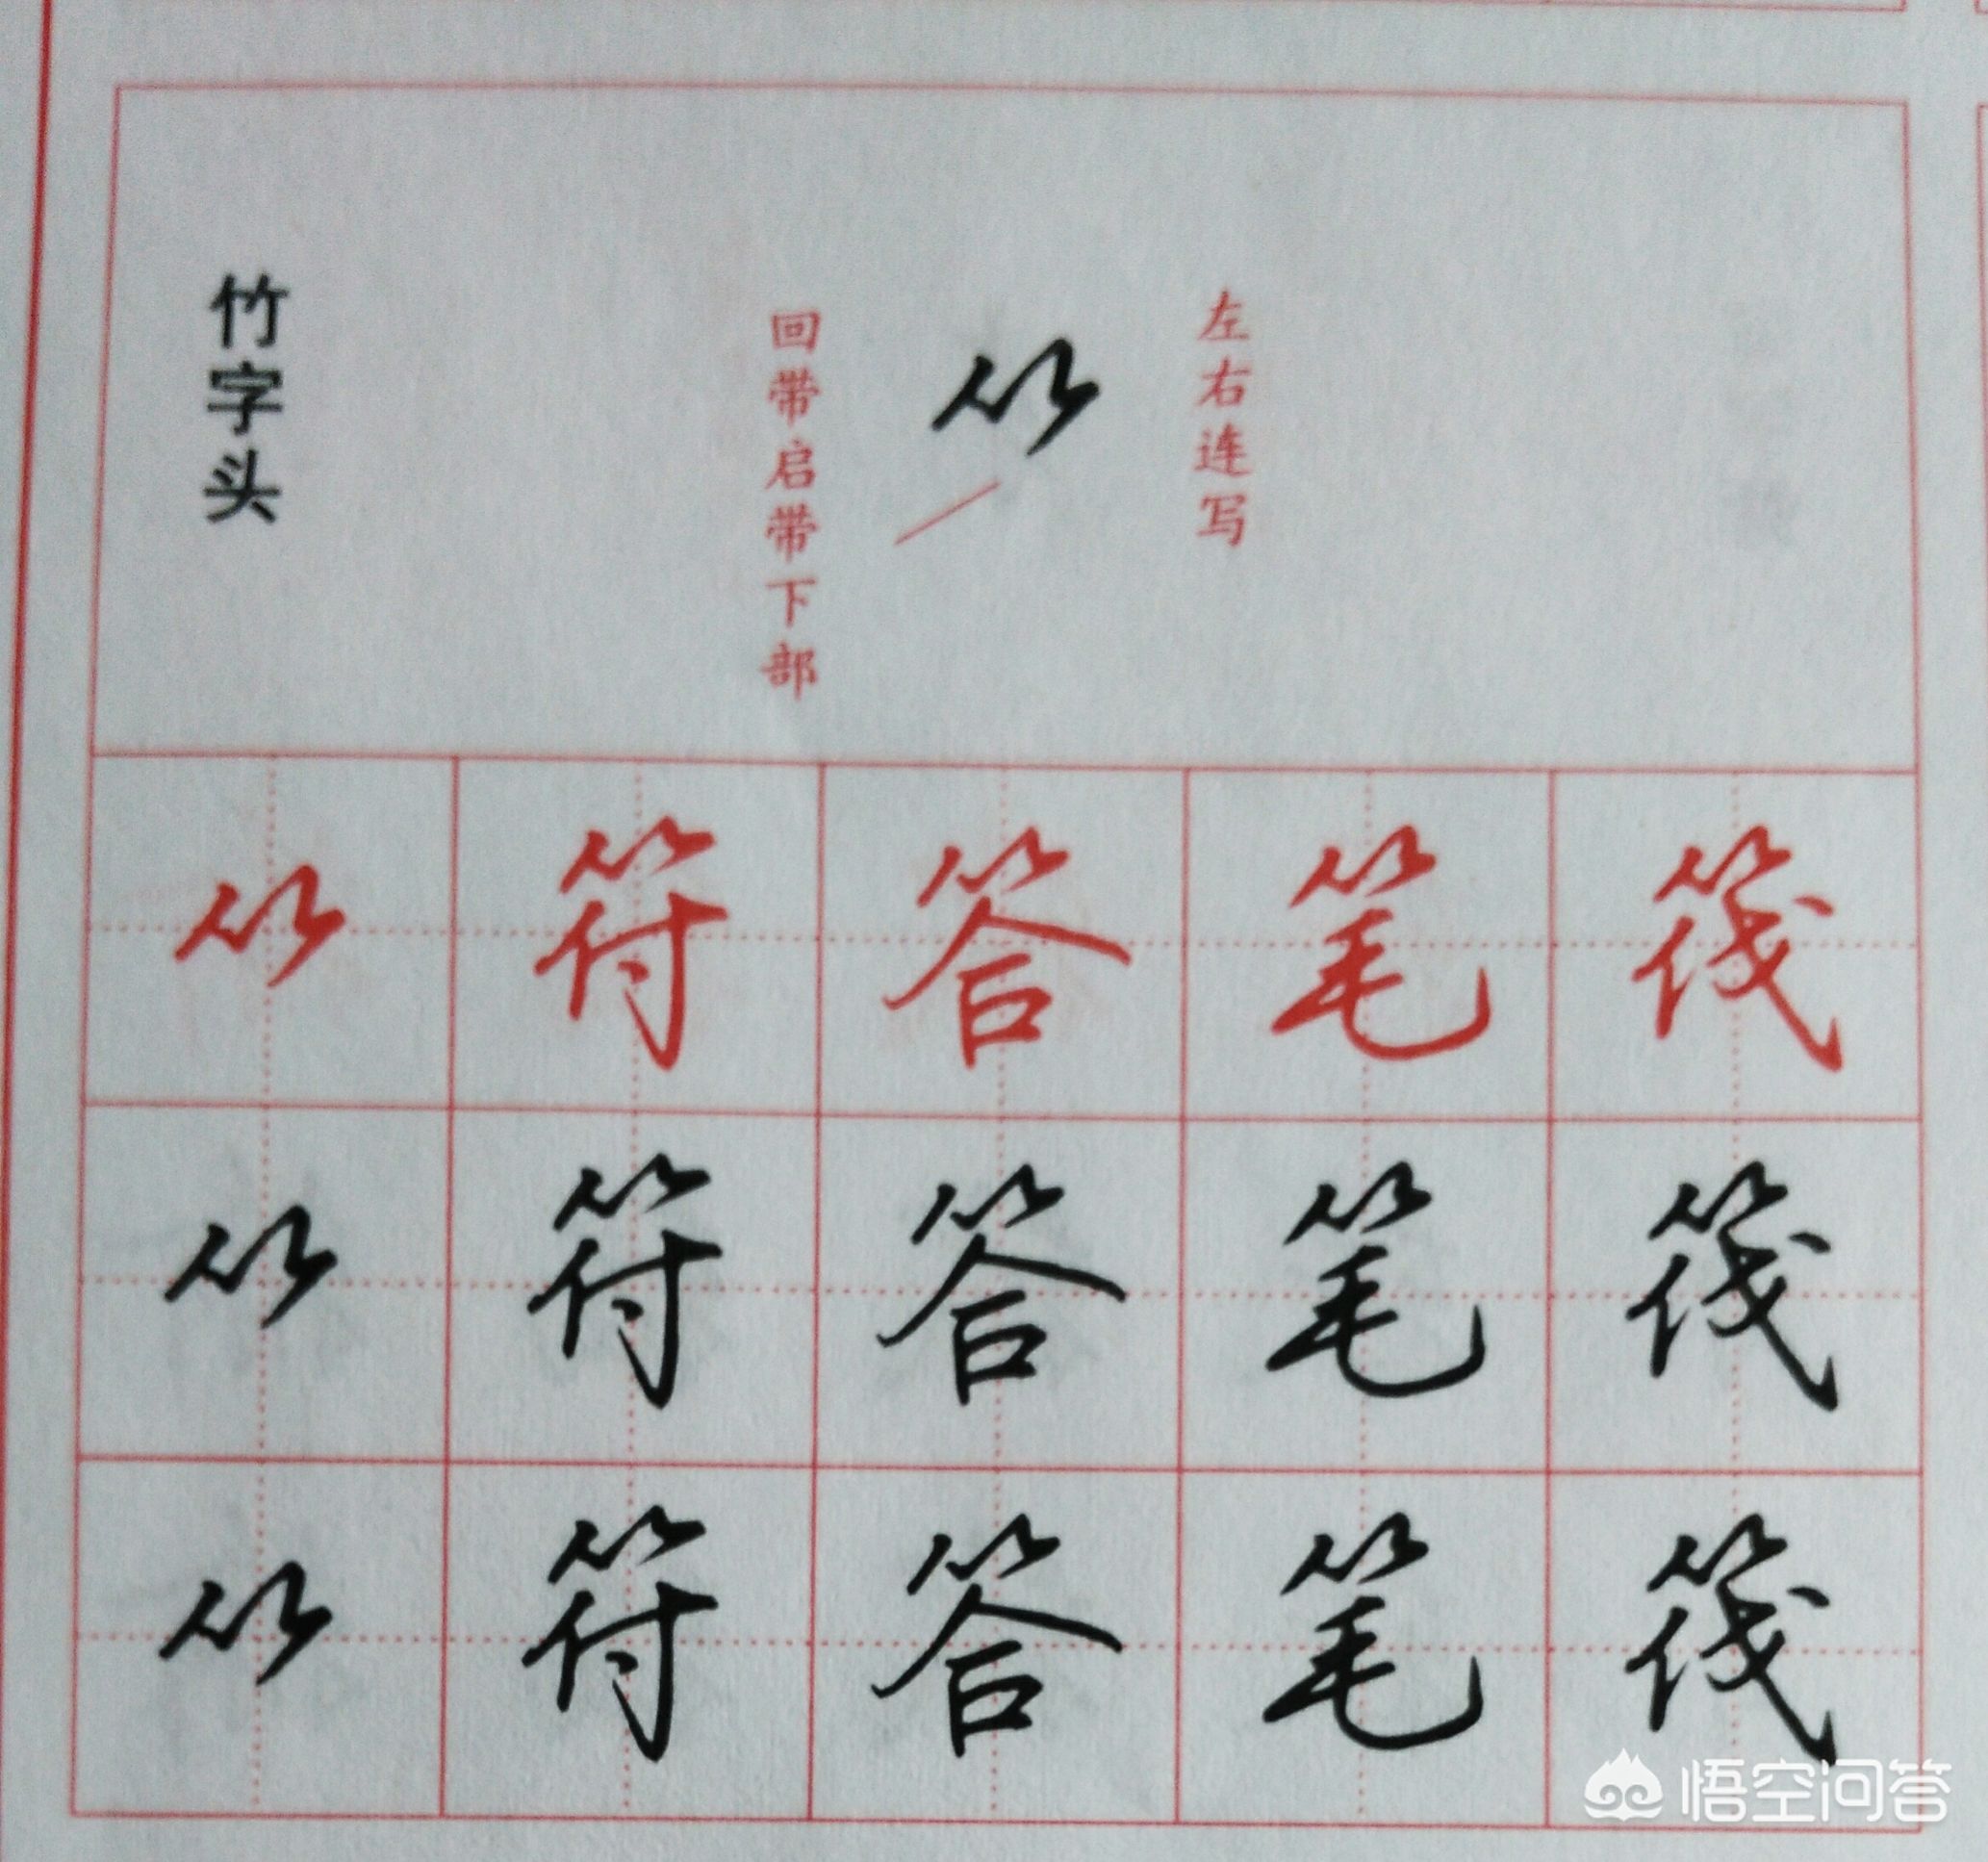 竹字头
回带启带下部
左右连写
⺮ 符 答 笔 筏
⺮ 符 答 笔 筏
⺮ 符 答 笔 筏
悟空问答